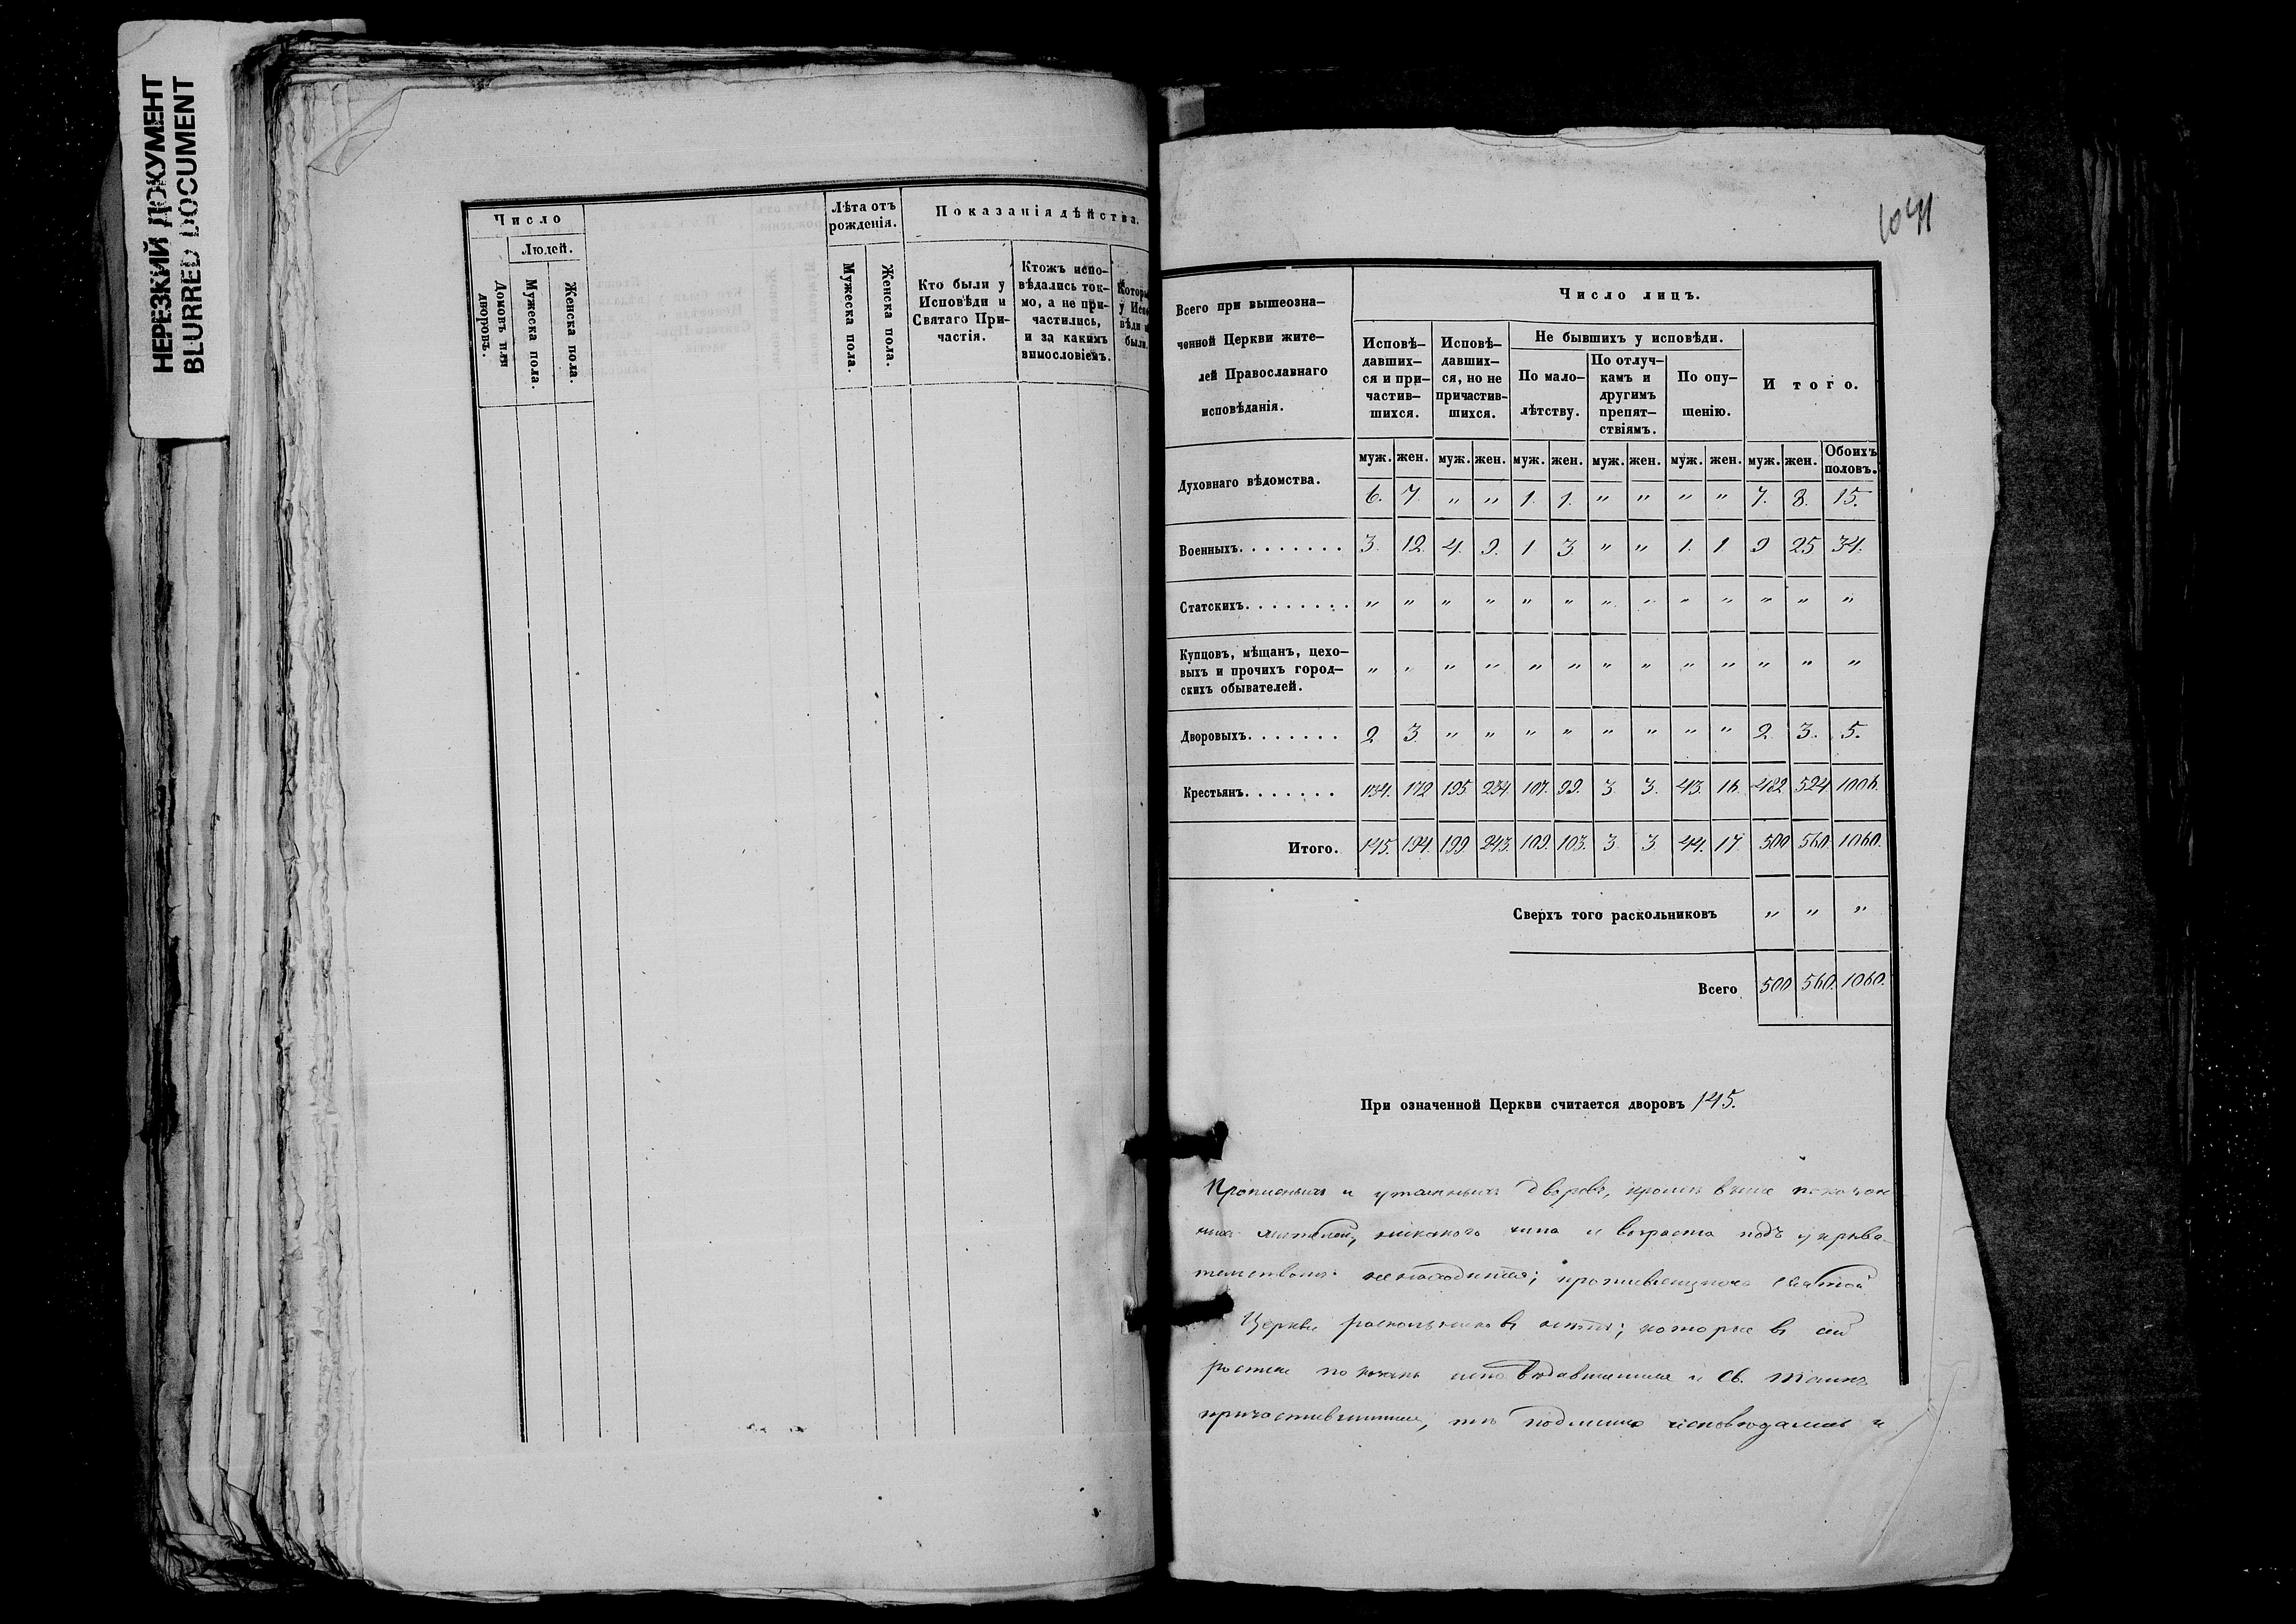 НЕРЕЗКИЙ ДОКУМЕНТ
BLURRED DOCUMENT
Число
Людей.
Домовъ или дворовъ.
Мужеска пола.
Женска пола.
Лѣта отъ рожденія.
Мужеска пола.
Женска пола.
Показанія дѣйства.
Кто были у Исповѣди и Святаго При-
частія.
Ктожъ испо-
вѣдались ток-
мо, а не при-
частились,
и за какимъ
вимословіемъ.
у
были.
Всего при вышеозна-
ченной Церкви жите-
лей Православнаго
исповѣданія.
Число лицъ.
Исповѣ-
давших-
ся и при-
частив-
шихся.
Исповѣ-
давших-
ся, но не
причастив-
шихся.
Не бывшихъ у исповѣди.
По мало-
лѣтству.
По отлуч-
камъ и
другимъ
препят-
ствіямъ.
По опу-
щенію.
Итого.
муж. жен. муж. жен. муж. жен. муж. жен. муж. жен. муж. жен. Обоихъ половъ.
Духовнаго вѣдомства. 6. 7. " " 1. 1. " " " " 7. 8. 15.
Военныхъ........ 3. 12. 4. 9. 1 3 " " 1. 1 9 25 34.
Статскихъ........ " " " " " " " " " " " " "
Купцовъ, мѣщанъ, цехо-
выхъ и прочихъ город-
скихъ обывателей. " " " " " " " " " " " " "
Дворовыхъ....... 2 3 " " " " " " " " 2. 3. 5.
Крестьянъ....... 134. 172 195. 234. 107. 99. 3 3. 43. 16. 482 524 1006.
Итого. 145. 194. 199 243. 109. 103. 3 3 44. 17. 500 560. 1060.
Сверхъ того раскольниковъ " " "
Всего 500 560. 1060.
При означенной Церкви считается дворовъ 145.
и утаенныхъ дворовъ, кромѣ выше показан
ныхъ жителей, никакого чина и возраста подъ укрыва
тельствомъ ненаходится; святой
Церкви раскольниковъ нѣтъ; которые въ сей
росписи исповѣдавшимися и Св. Таинъ
причастившимися, тѣ исповѣдались и